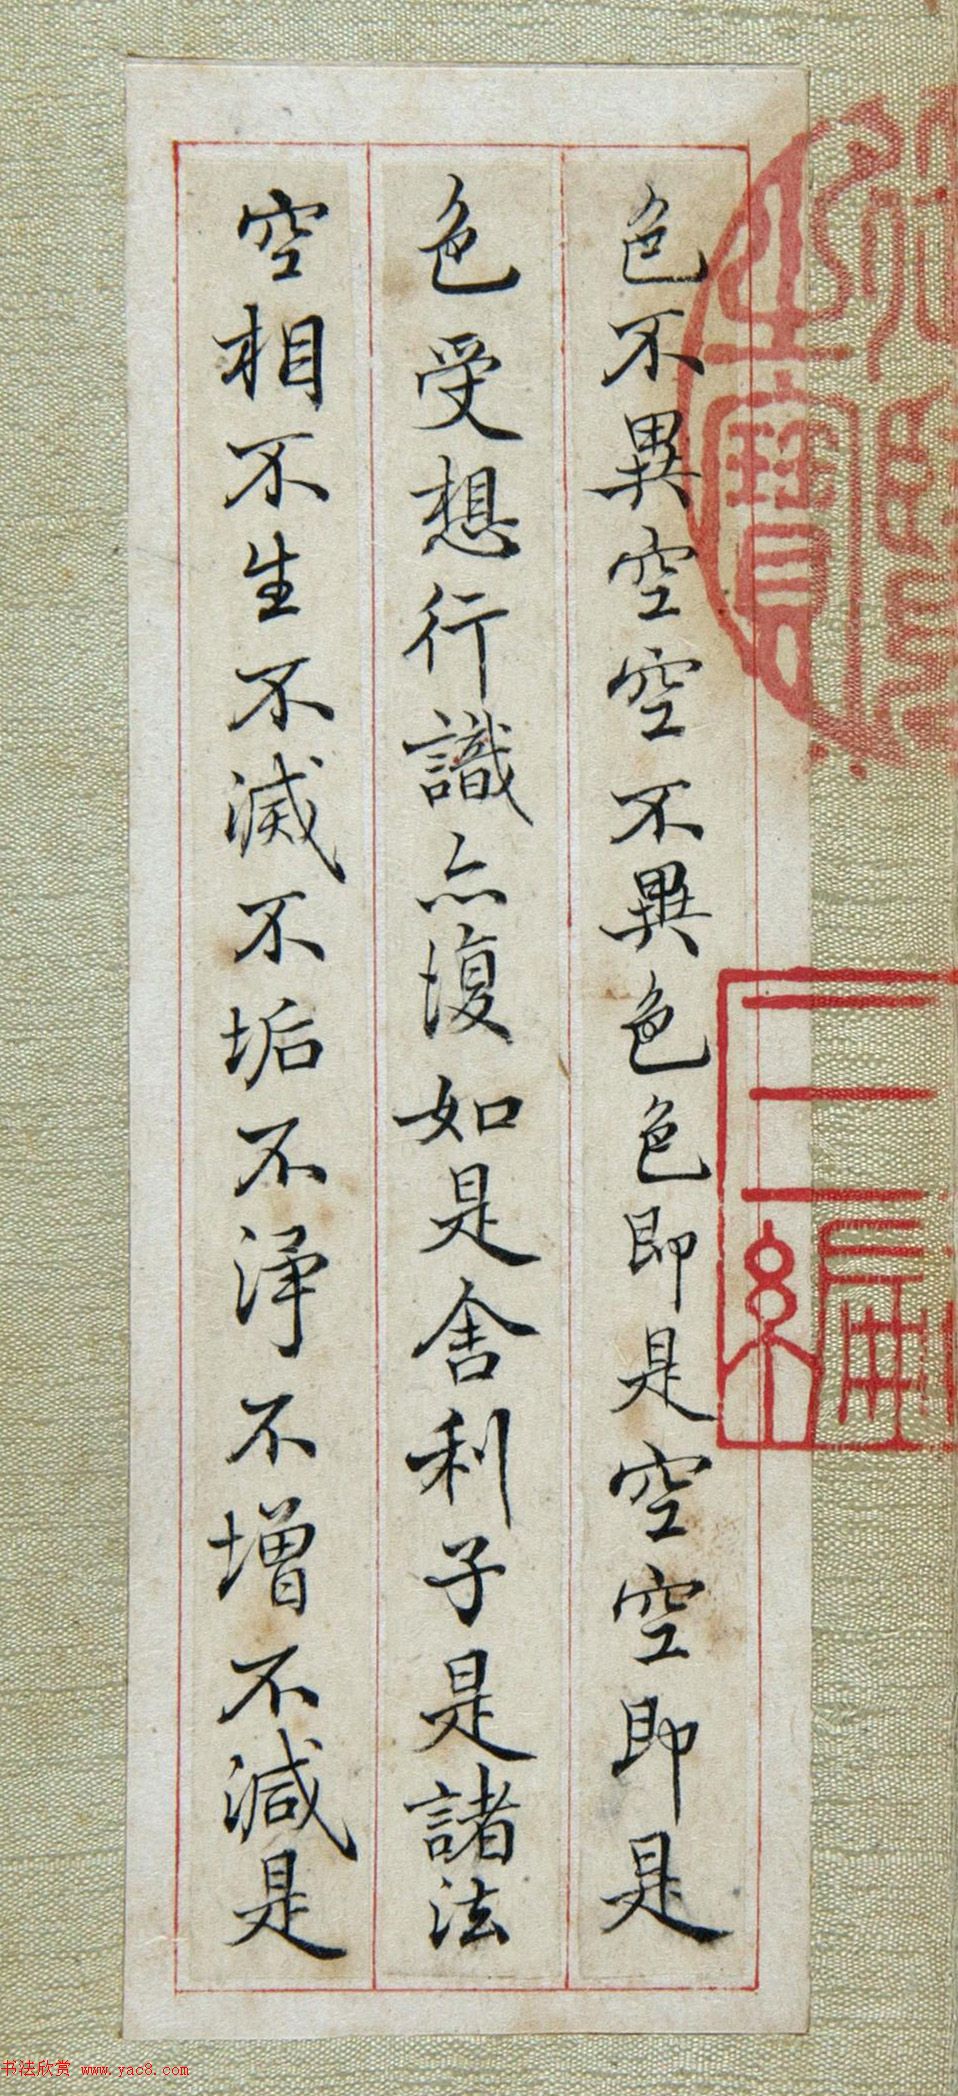 色不異空空不異色色即是空空即是
色受想行識亦復如是舍利子是諸法
空相不生不滅不垢不淨不增不減是
书法欣赏 www.yac8.com